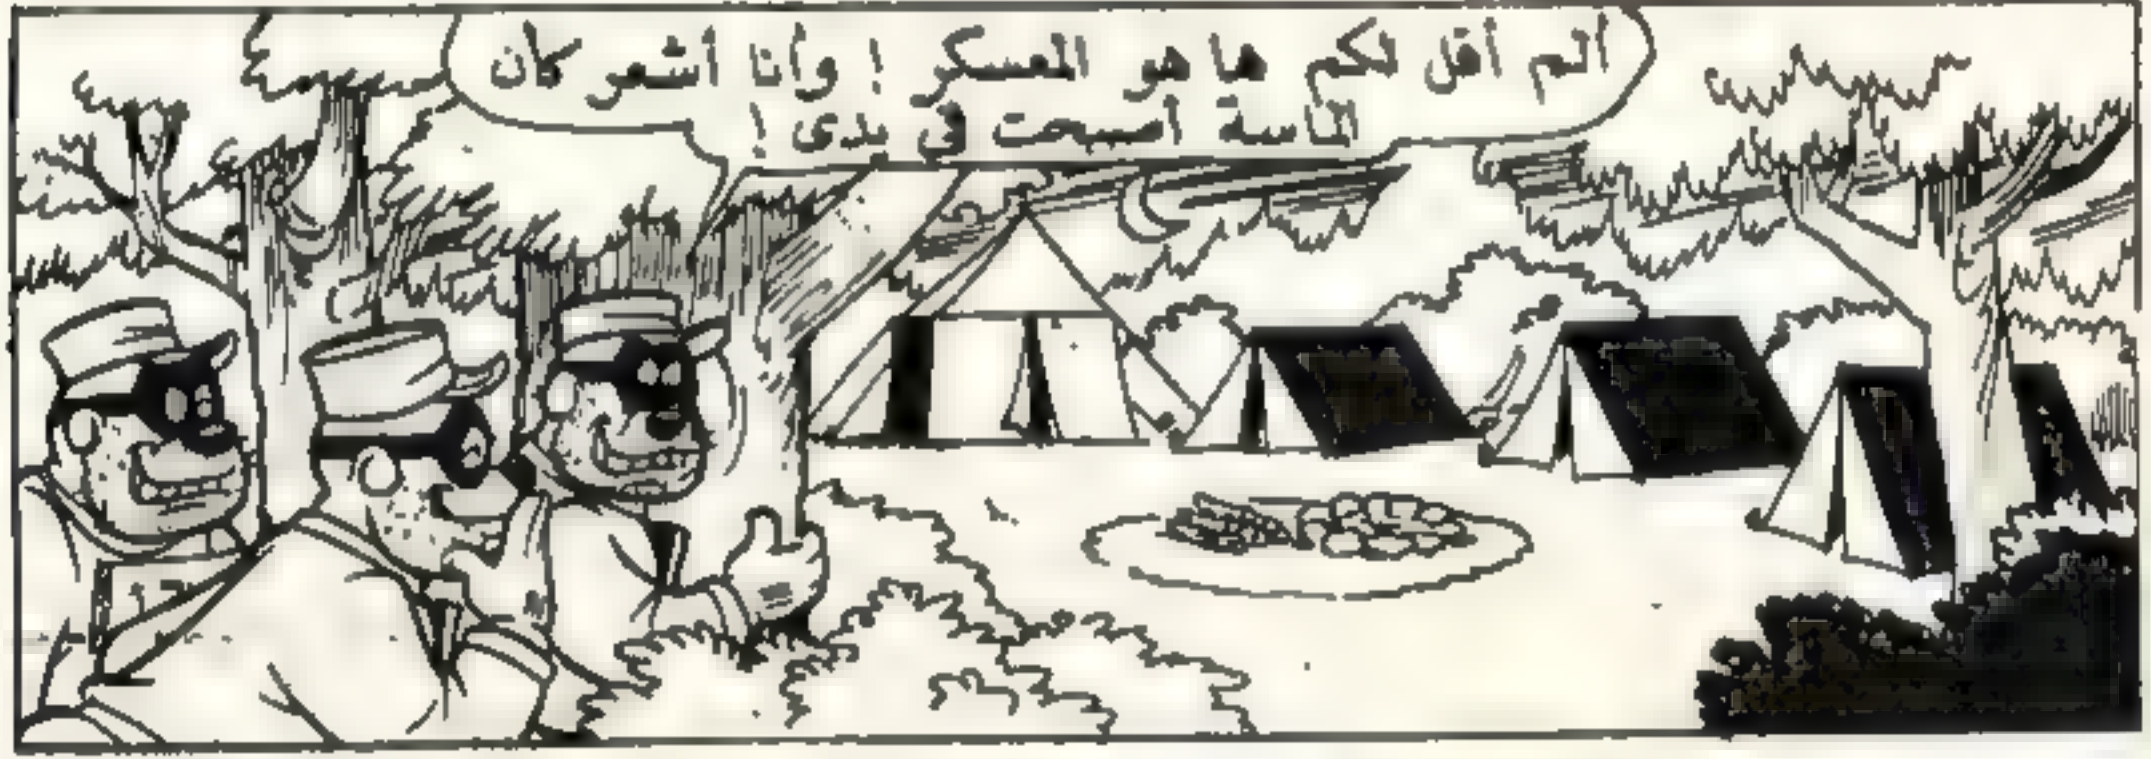 ألم أقل لكم ها هو المعسكر ! وأنا أشعر كأن
الماسة أصبحت في يدى !